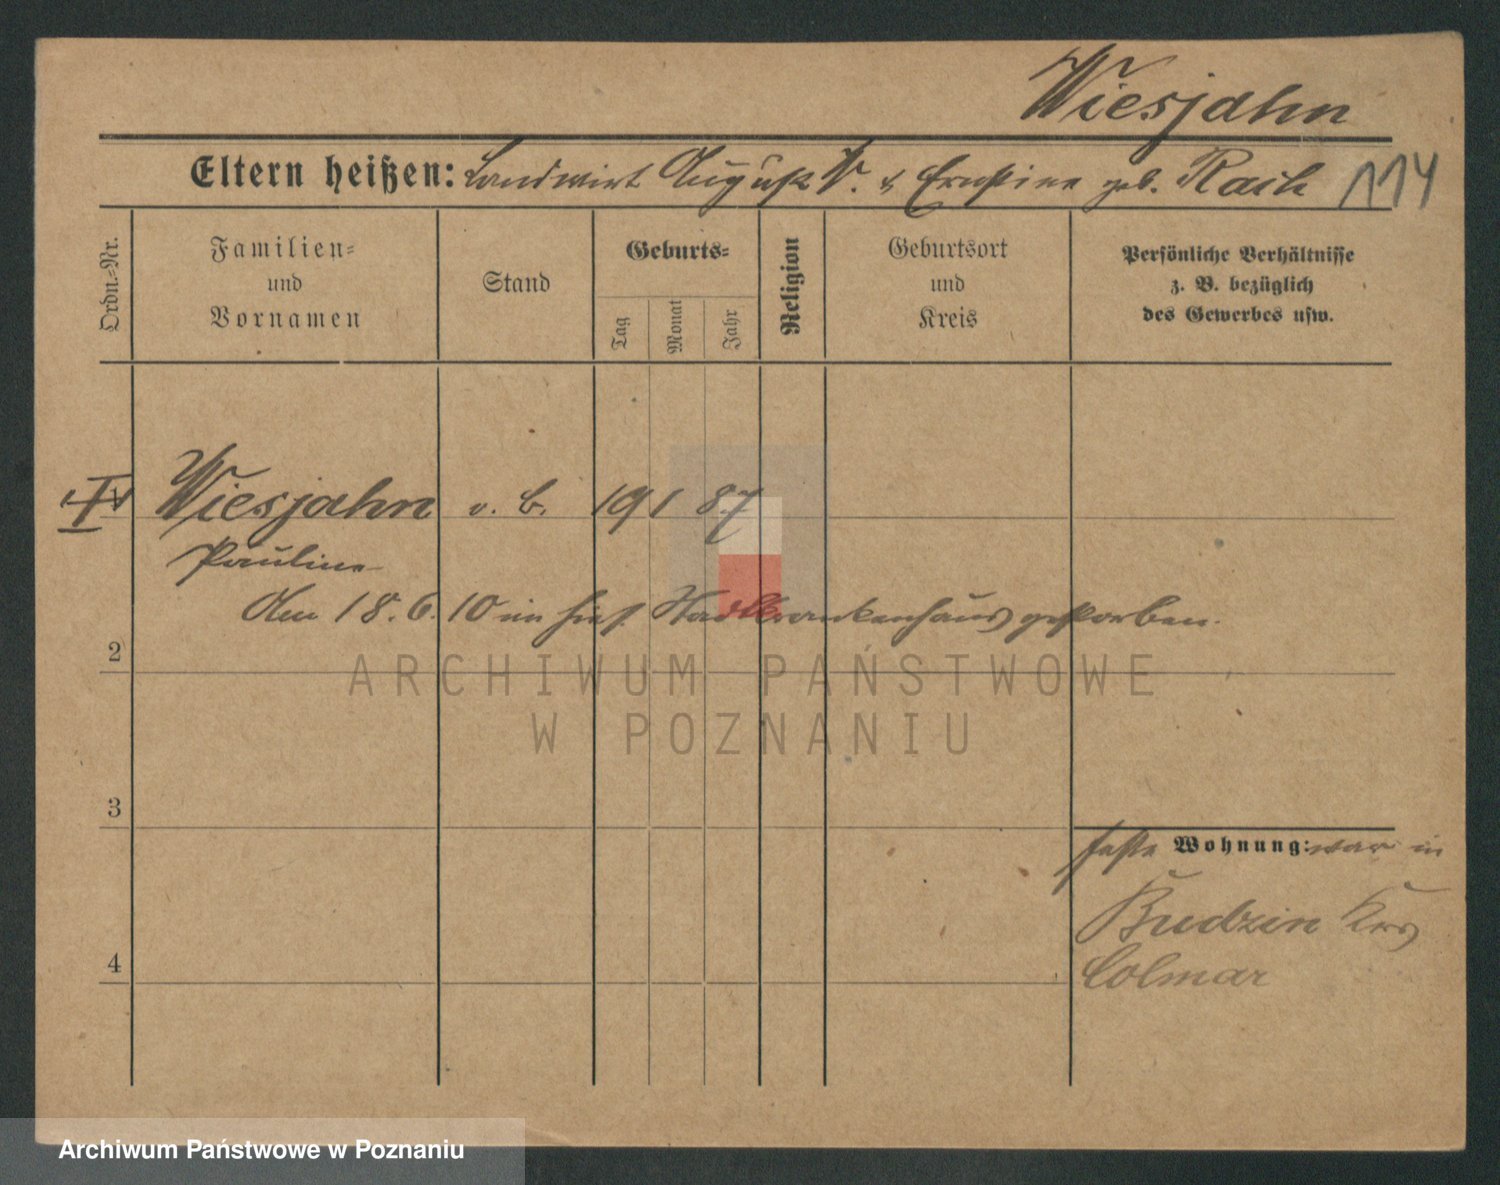 Wiesjahn
Eltern heißen: Landwirt August W. & Ernstine geb. Rach 114
Ordn.=Nr.
Familien=
und
Vornamen
Stand
Geburts=
Tag
Monat
Jahr
Religion
Geburtsort
und
Kreis
Persönliche Verhältnisse
z. B. bezüglich
des Gewerbes usw.
Wiesjahn v. b. 19 1 87
Pauline
den 18. 6. 10 im hies. Stadtkrankenhaus gestorben.
2
ARCHIWUM PAŃSTWOWE
W POZNANIU
3
feste Wohnung: war in
Budzin Krs
Colmar
4
Archiwum Państwowe w Poznaniu